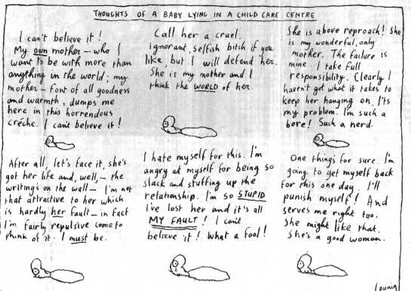 THOUGHTS OF A BABY LYING IN A CHILD CARE CENTRE
I can't believe it!
My own mother – who I
want to be with more than
anything in the world; my
mother – Font of all goodness
and warmth, dumps me
here in this horrendous
crèche. I can't believe it!
Call her a cruel,
ignorant, selfish bitch if you
like, but I will defend her.
She is my mother and I
think the WORLD of her.
She is above reproach! She
is my wonderful, only
mother. The failure is
mine. I take full
responsibility. Clearly I
haven't got what it takes to
keep her hanging on. It's
my problem. I'm such a
bore! Such a nerd.
After all, let's face it, she's
got her life and, well, – the
writing's on the wall – I'm not
that attractive to her which
is hardly her fault – in fact
I'm fairly repulsive come to
think of it. I must be.
I hate myself for this. I'm
angry at myself for being so
slack and stuffing up the
relationship. I'm so STUPID
I've lost her and it's all
MY FAULT! I can't
believe it! What a fool!
One thing's for sure. I'm
going to get myself back
for this one day. I'll
punish myself! And
serves me right too.
She might like that.
She's a good woman.
Leunig